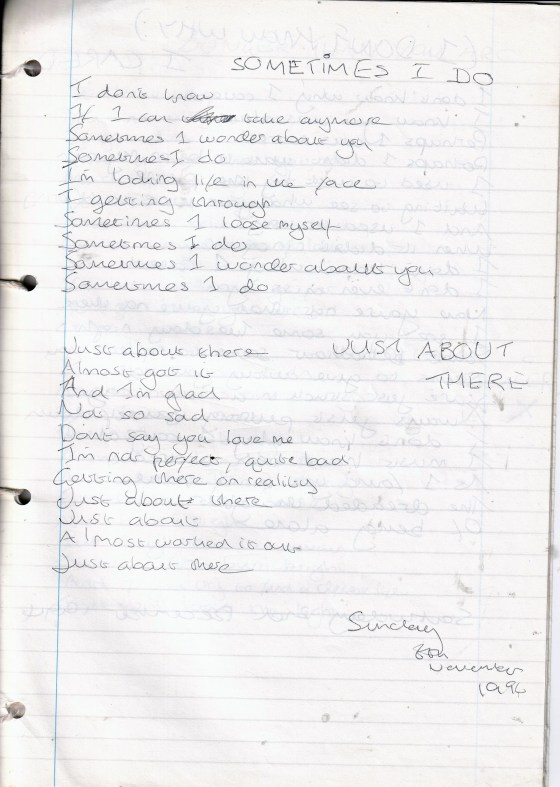 SOMETIMES I DO
I don't know
If I can take anymore
Sometimes I wonder about you
Sometimes I do
I'm looking life in the face
I getting through
Sometimes I loose myself
Sometimes I do
Sometimes I wonder about you
Sometimes I do
Just about there
JUST ABOUT
Almost got it
THERE
And I'm glad
Not so sad
Don't say you love me
I'm not perfect, quite bad
Getting there on reality
Just about there
Just about
Almost worked it out
Just about there
Sunday
November